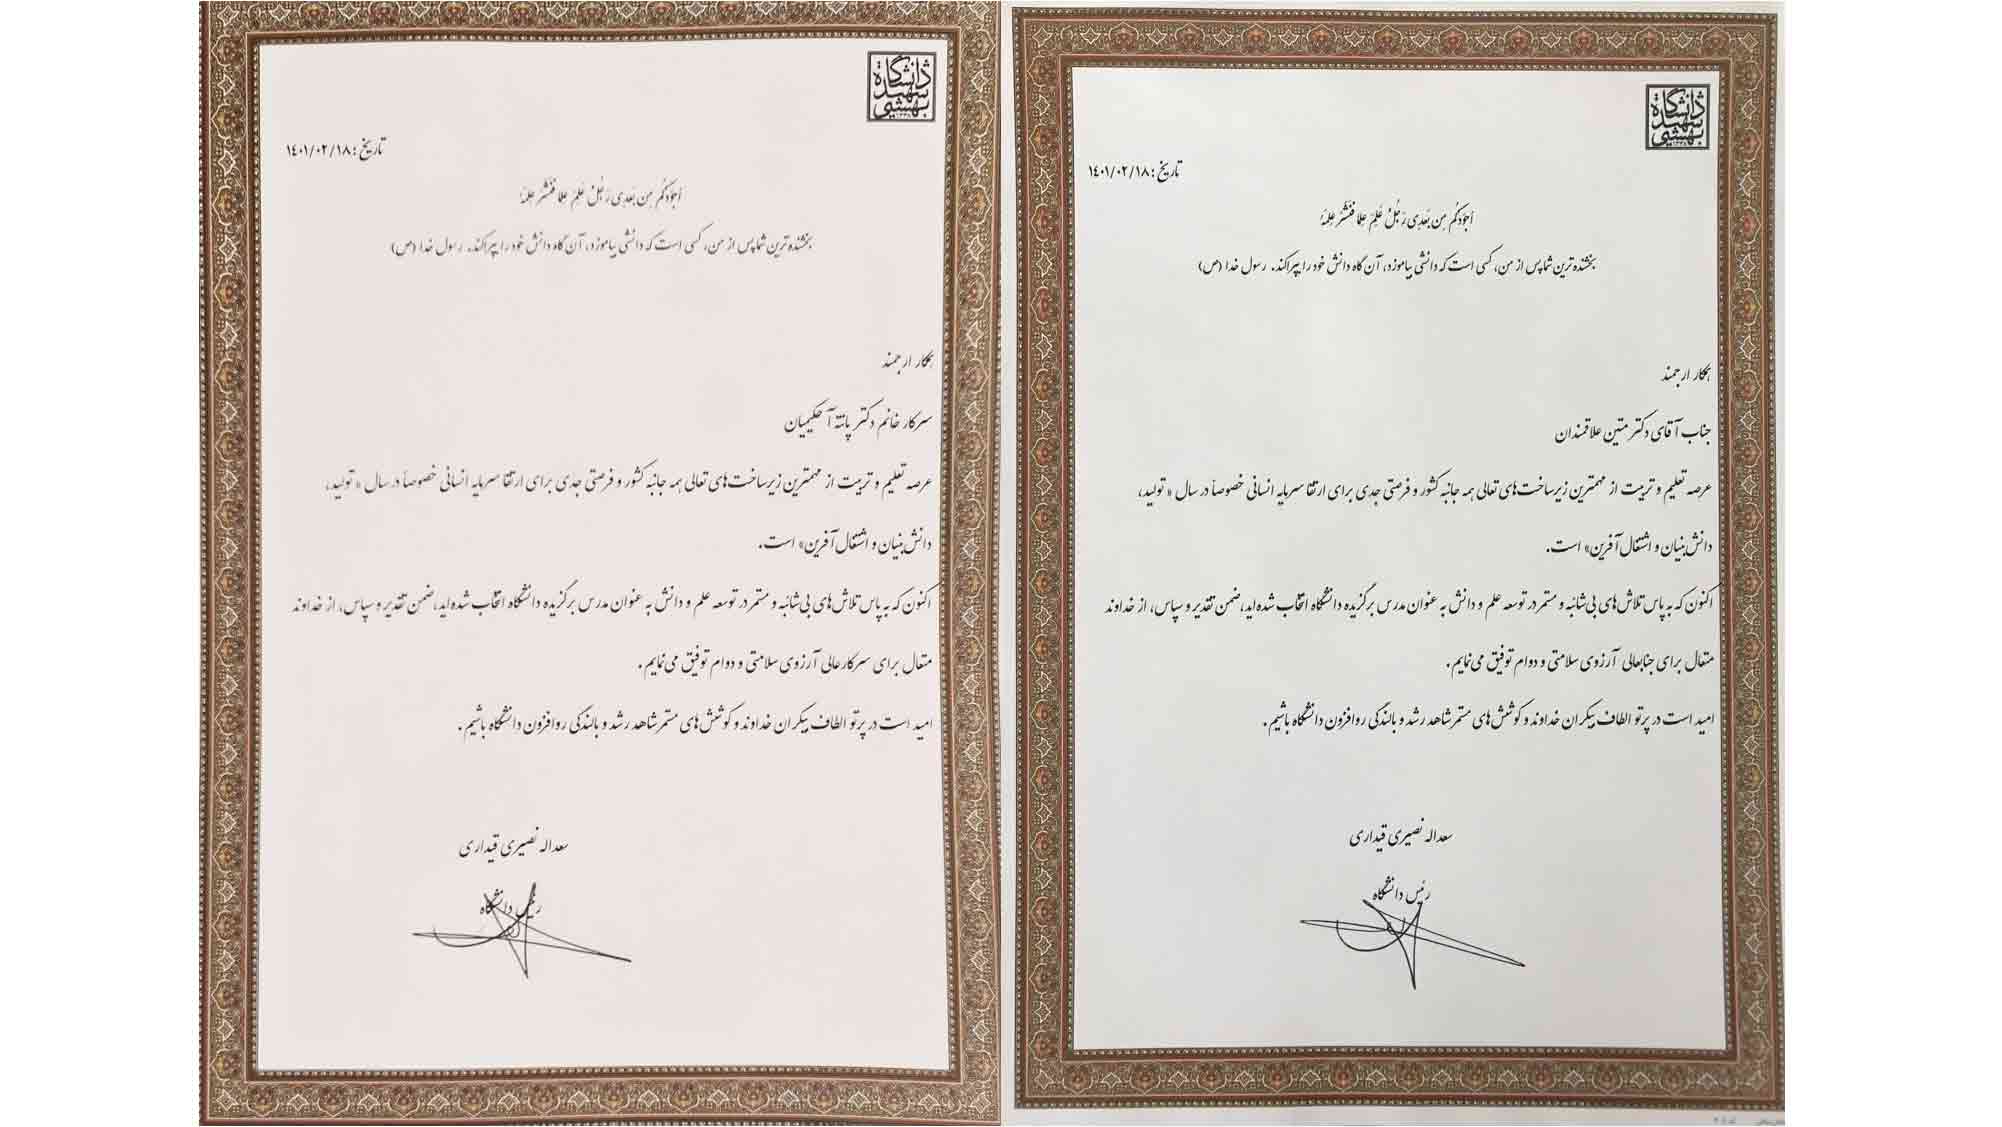 دانشگاه
شهید
بهشتی
۱۳۳۸
تاریخ : ۱۴۰۱/۰۲/۱۸
أجوَدُكُم مِن بَعدِی رَجُلٌ عَلِمَ عِلمًا فَنَشَرَ عِلمَهُ
بخشنده ترین شما پس از من، کسی است که دانشی بیاموزد، آن گاه دانش خود را بپراکند. رسول خدا (ص)
همکار ارجمند
جناب آقای دکتر متین علاقمندان
عرصه تعلیم و تربیت از مهمترین زیرساخت‌های تعالی همه جانبه کشور و فرصتی جدی برای ارتقا سرمایه انسانی خصوصاً در سال « تولید،
دانش بنیان و اشتغال آفرین» است.
اکنون که به پاس تلاش‌های بی‌شائبه و مستمر در توسعه علم و دانش به عنوان مدرس برگزیده دانشگاه انتخاب شده‌اید،ضمن تقدیر و سپاس، از خداوند
متعال برای جنابعالی آرزوی سلامتی و دوام توفیق می‌نمایم.
امید است در پرتو الطاف بیکران خداوند و کوشش‌های مستمر شاهد رشد و بالندگی روافزون دانشگاه باشیم.
سعداله نصیری قیداری
رئیس دانشگاه
دانشگاه
شهید
بهشتی
۱۳۳۸
تاریخ : ۱۴۰۱/۰۲/۱۸
أجوَدُكُم مِن بَعدِی رَجُلٌ عَلِمَ عِلمًا فَنَشَرَ عِلمَهُ
بخشنده ترین شما پس از من، کسی است که دانشی بیاموزد، آن گاه دانش خود را بپراکند. رسول خدا (ص)
همکار ارجمند
سرکار خانم دکتر پانته آ حکیمیان
عرصه تعلیم و تربیت از مهمترین زیرساخت‌های تعالی همه جانبه کشور و فرصتی جدی برای ارتقا سرمایه انسانی خصوصاً در سال « تولید،
دانش بنیان و اشتغال آفرین» است.
اکنون که به پاس تلاش‌های بی‌شائبه و مستمر در توسعه علم و دانش به عنوان مدرس برگزیده دانشگاه انتخاب شده‌اید،ضمن تقدیر و سپاس، از خداوند
متعال برای سرکارعالی آرزوی سلامتی و دوام توفیق می‌نمایم.
امید است در پرتو الطاف بیکران خداوند و کوشش‌های مستمر شاهد رشد و بالندگی روافزون دانشگاه باشیم.
سعداله نصیری قیداری
رئیس دانشگاه